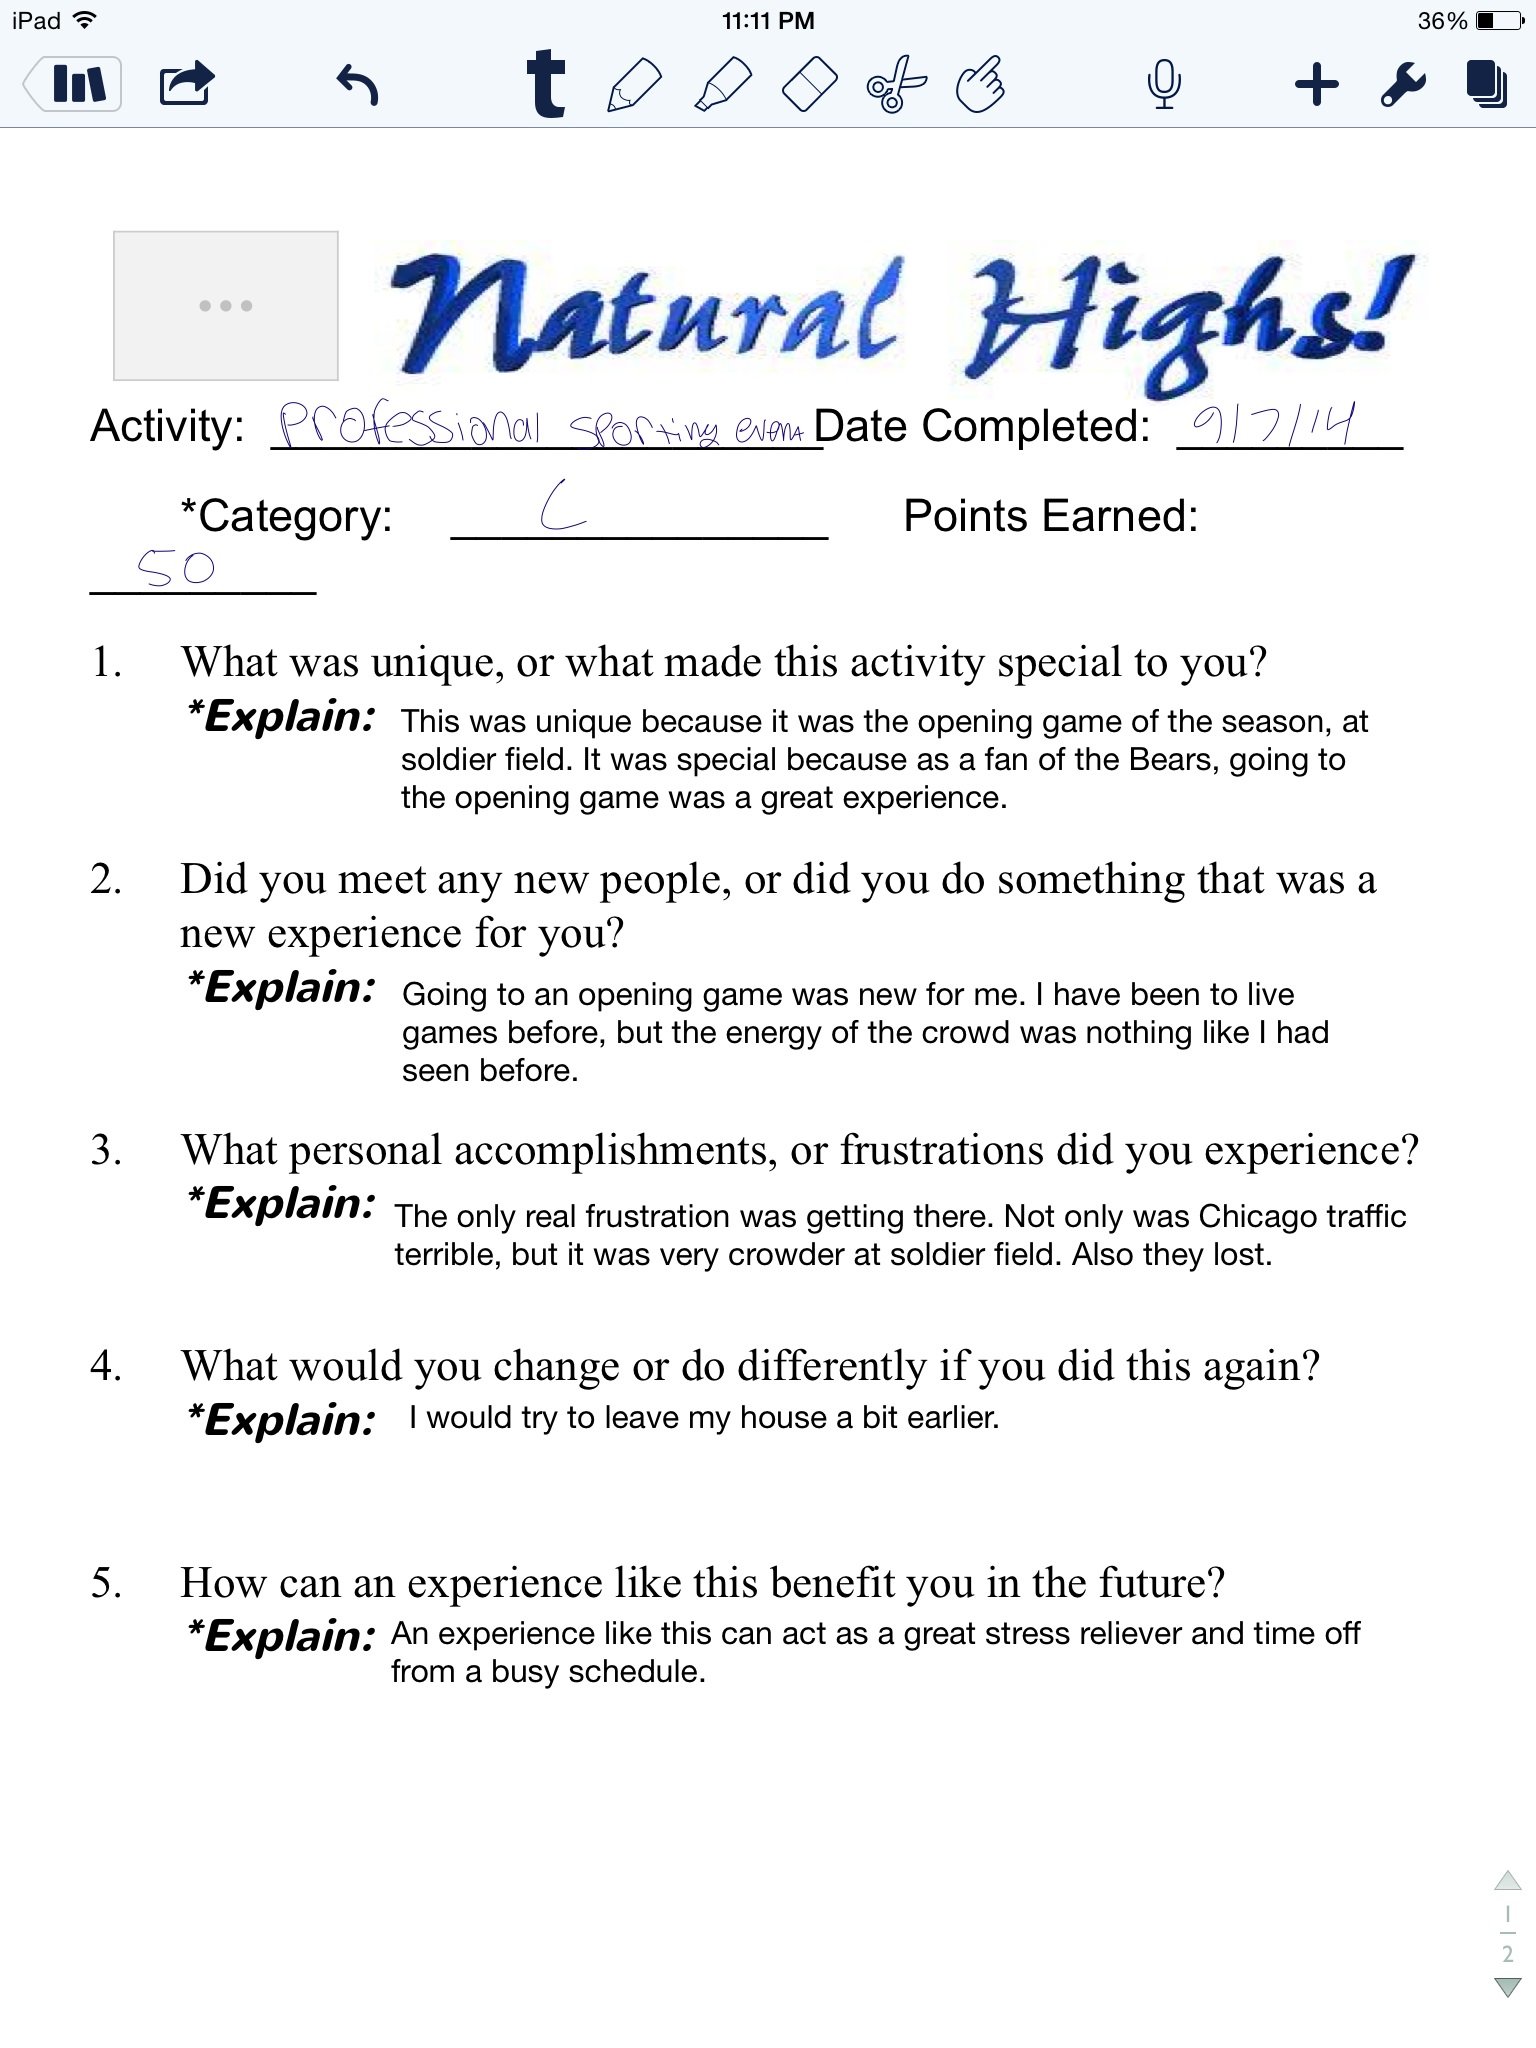 iPad 11:11 PM 36%
t
Natural Highs!
Activity: Professional sporting event Date Completed: 9/7/14
*Category: C Points Earned:
50
1. What was unique, or what made this activity special to you?
*Explain: This was unique because it was the opening game of the season, at
soldier field. It was special because as a fan of the Bears, going to
the opening game was a great experience.
2. Did you meet any new people, or did you do something that was a
new experience for you?
*Explain: Going to an opening game was new for me. I have been to live
games before, but the energy of the crowd was nothing like I had
seen before.
3. What personal accomplishments, or frustrations did you experience?
*Explain: The only real frustration was getting there. Not only was Chicago traffic
terrible, but it was very crowder at soldier field. Also they lost.
4. What would you change or do differently if you did this again?
*Explain: I would try to leave my house a bit earlier.
5. How can an experience like this benefit you in the future?
*Explain: An experience like this can act as a great stress reliever and time off
from a busy schedule.
1
2